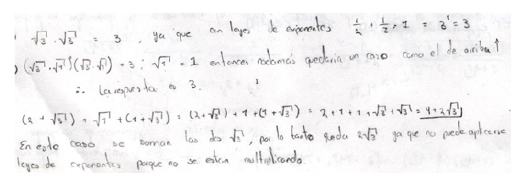 √3 · √3 = 3, ya que con leyes de exponentes 1/2 + 1/2 = 1 = 3¹ = 3
) (√3 · √1)(√3 · √1) = 3; √1 = 1 entonces quedaria un caso como el de arriba ↑
∴ La respuesta es 3.
(2 + √3) + √1 + (1 + √3) = (2 + √3) + 1 + (1 + √3) = 2 + 1 + 1 + √3 + √3 = 4 + 2√3
En este caso se suman las dos √3, por lo tanto queda 2√3 ya que no puede aplicarse
leyes de exponentes porque no se estan multiplicando.